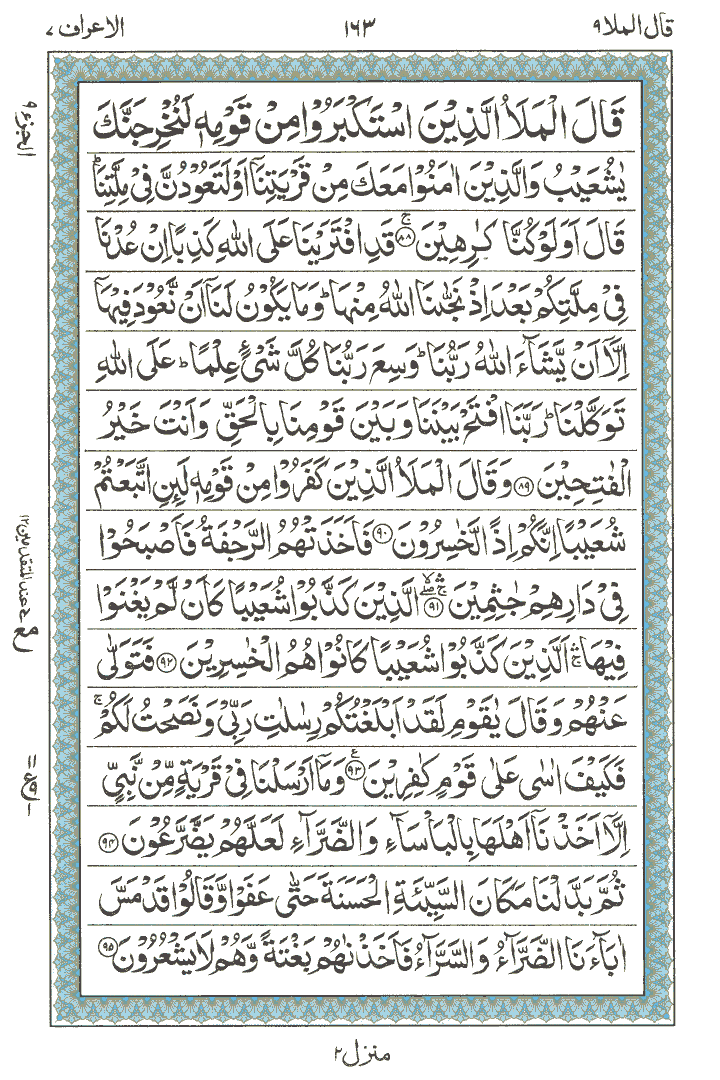 قال الملا ۹
۱۶۳
الاعراف ۷
الجزء ۹
قَالَ الْمَلَاُ الَّذِيْنَ اسْتَكْبَرُوْا مِنْ قَوْمِهٖ لَنُخْرِجَنَّكَ
يٰشُعَيْبُ وَالَّذِيْنَ اٰمَنُوْا مَعَكَ مِنْ قَرْيَتِنَاۤ اَوْ لَتَعُوْدُنَّ فِيْ مِلَّتِنَاؕ
قَالَ اَوَلَوْ كُنَّا كٰرِهِيْنَۚ ﴿۸۸﴾ قَدِ افْتَرَيْنَا عَلَى اللّٰهِ كَذِبًا اِنْ عُدْنَا
فِيْ مِلَّتِكُمْ بَعْدَ اِذْ نَجّٰىنَا اللّٰهُ مِنْهَاؕ وَمَا يَكُوْنُ لَنَاۤ اَنْ نَّعُوْدَ فِيْهَاۤ
اِلَّاۤ اَنْ يَّشَآءَ اللّٰهُ رَبُّنَاؕ وَسِعَ رَبُّنَا كُلَّ شَيْءٍ عِلْمًاؕ عَلَى اللّٰهِ
تَوَكَّلْنَاؕ رَبَّنَا افْتَحْ بَيْنَنَا وَبَيْنَ قَوْمِنَا بِالْحَقِّ وَاَنْتَ خَيْرُ
الْفٰتِحِيْنَ ﴿۸۹﴾ وَقَالَ الْمَلَاُ الَّذِيْنَ كَفَرُوْا مِنْ قَوْمِهٖ لَىِٕنِ اتَّبَعْتُمْ
شُعَيْبًا اِنَّكُمْ اِذًا لَّخٰسِرُوْنَ ﴿۹۰﴾ فَاَخَذَتْهُمُ الرَّجْفَةُ فَاَصْبَحُوْا
فِيْ دَارِهِمْ جٰثِمِيْنَ ﴿۹۱﴾ الَّذِيْنَ كَذَّبُوْا شُعَيْبًا كَاَنْ لَّمْ يَغْنَوْا
فِيْهَاۚۛ اَلَّذِيْنَ كَذَّبُوْا شُعَيْبًا كَانُوْا هُمُ الْخٰسِرِيْنَ ﴿۹۲﴾ فَتَوَلّٰى
عَنْهُمْ وَقَالَ يٰقَوْمِ لَقَدْ اَبْلَغْتُكُمْ رِسٰلٰتِ رَبِّيْ وَنَصَحْتُ لَكُمْۚ
فَكَيْفَ اٰسٰى عَلٰى قَوْمٍ كٰفِرِيْنَ ﴿۹۳﴾ وَمَاۤ اَرْسَلْنَا فِيْ قَرْيَةٍ مِّنْ نَّبِيٍّ
اِلَّاۤ اَخَذْنَاۤ اَهْلَهَا بِالْبَاْسَآءِ وَالضَّرَّآءِ لَعَلَّهُمْ يَضَّرَّعُوْنَ ﴿۹۴﴾
ثُمَّ بَدَّلْنَا مَكَانَ السَّيِّئَةِ الْحَسَنَةَ حَتّٰى عَفَوْا وَّقَالُوْا قَدْ مَسَّ
اٰبَآءَنَا الضَّرَّآءُ وَالسَّرَّآءُ فَاَخَذْنٰهُمْ بَغْتَةً وَّهُمْ لَا يَشْعُرُوْنَ ﴿۹۵﴾
منزل ۲